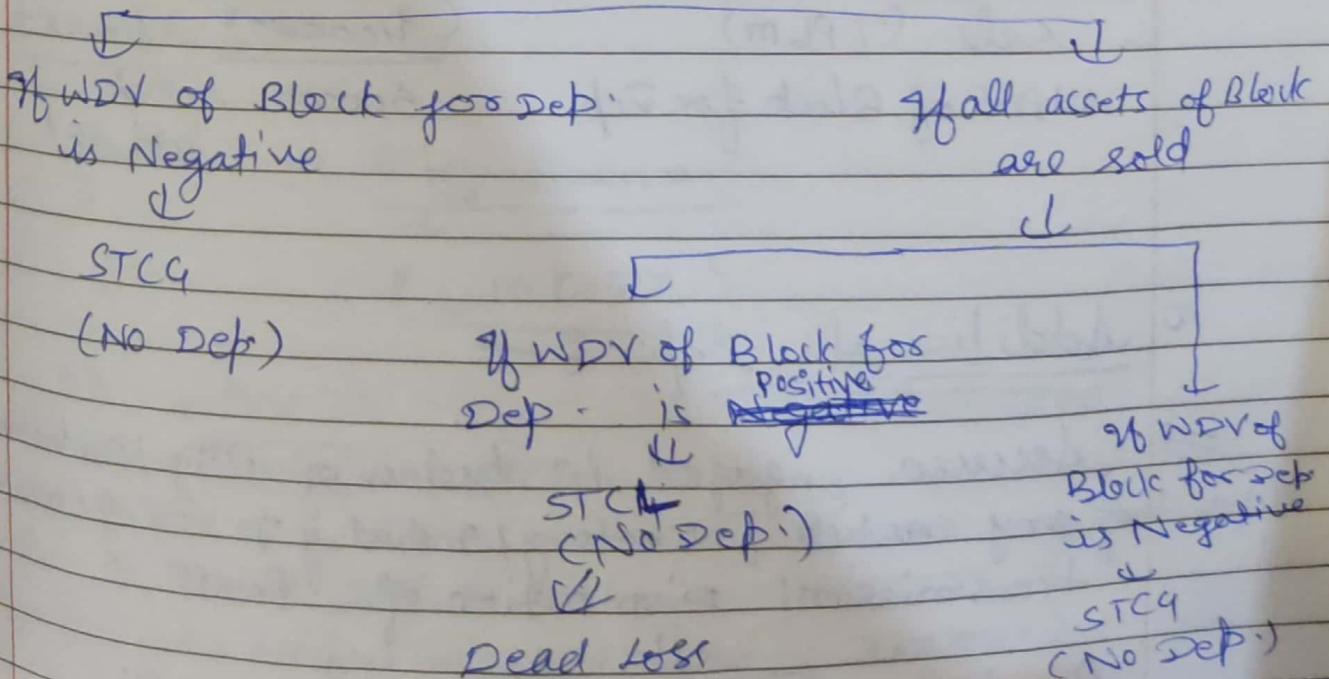 If WDV of Block for Dep.
is Negative
STCG
(No Dep.)
If all assets of Block
are sold
If WDV of Block for
Dep. is Positive
STCL
(No Dep.)
Dead Loss
If WDV of
Block for Dep
is Negative
STCG
(No Dep.)